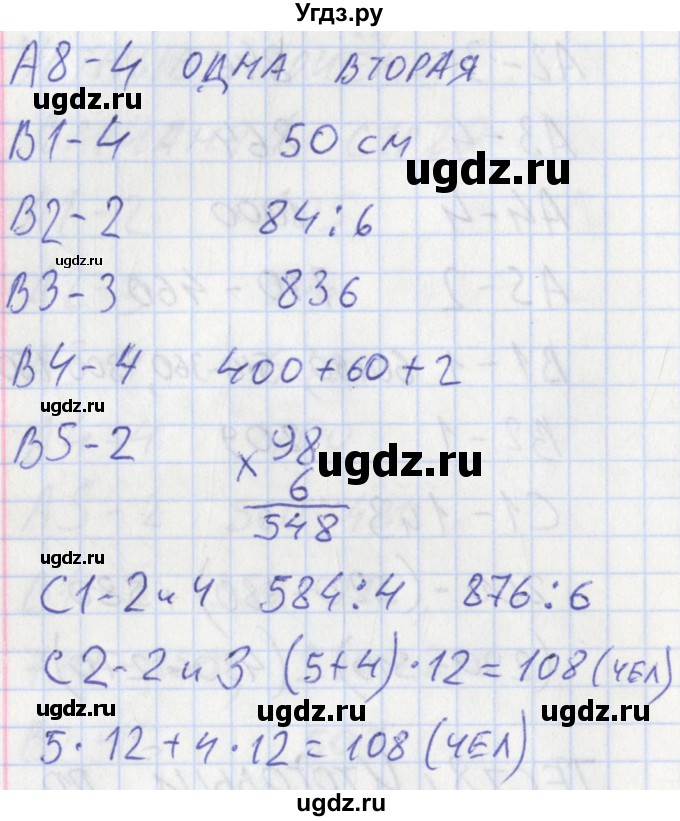 Угдз.ру
А8-4 ОДНА ВТОРАЯ
ugdz.ru
В1-4 50 см
ugdz.ru
В2-2 84:6
ugdz.ru
В3-3 836
В4-4 400+60+2
ugdz.ru
В5-2 98
ugdz.ru
× 6
548
ugdz.ru
С1-2 и 4 584:4 876:6
С2-2 и 3 (5+4)·12=108(ЧЕЛ)
ugdz.ru
ugdz.ru
5·12+4·12=108(ЧЕЛ)
ugdz.ru
ugdz.ru